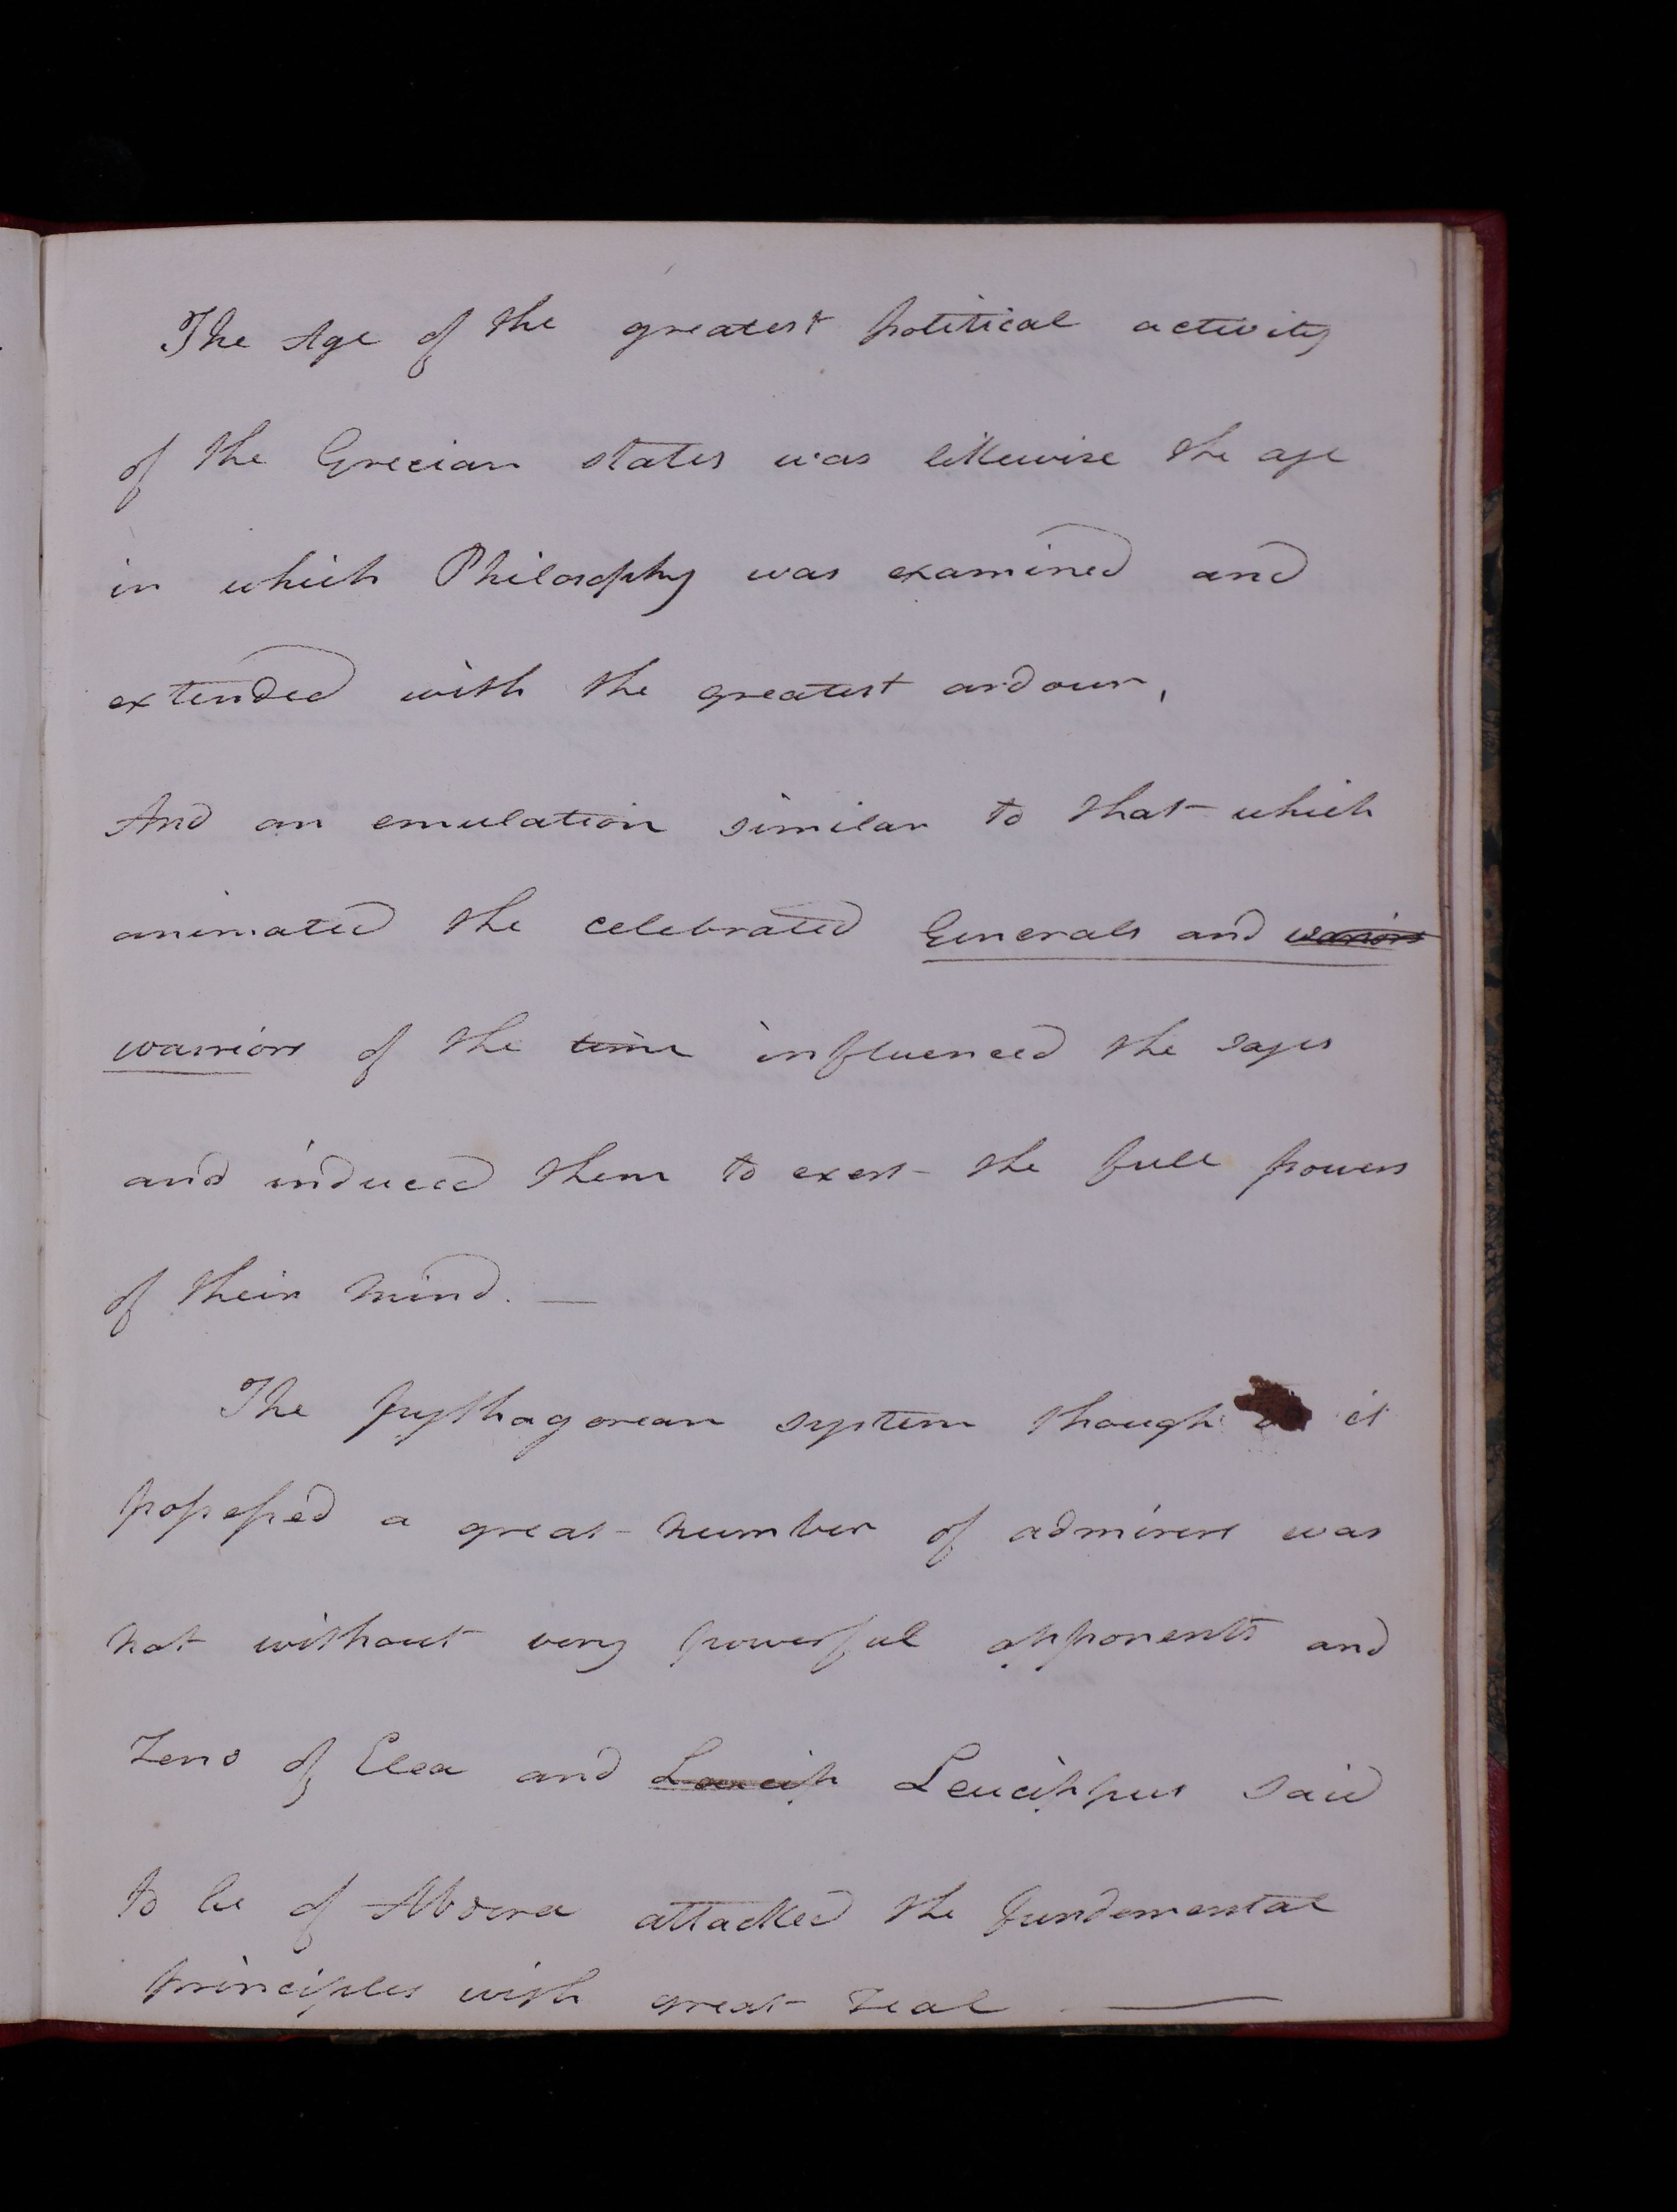 The Age of the greatest political activity
of the Grecian states was likewise the age
in which Philosophy was examined and
extended with the greatest ardour,
And an emulation similar to that which
animated the celebrated Generals and warriors
warriors of the time influenced the sages
and induced them to exert the full powers
of their mind. —
The pythagorean system though it
possessed a great number of admirers was
not without very powerful opponents and
Zeno of Elea and Leucippus said
to be of Abdera attacked the fundamental
principles with great zeal —